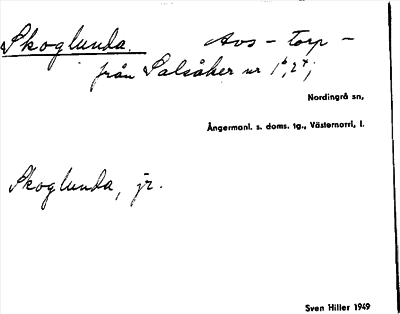 Skoglunda. Avs - torp -
från Salsåker nr 1⁶, 2⁴;
Nordingrå sn,
Ångermanl. s. doms. tg., Västernorrl, l.
Skoglunda, jr.
Sven Hiller 1949